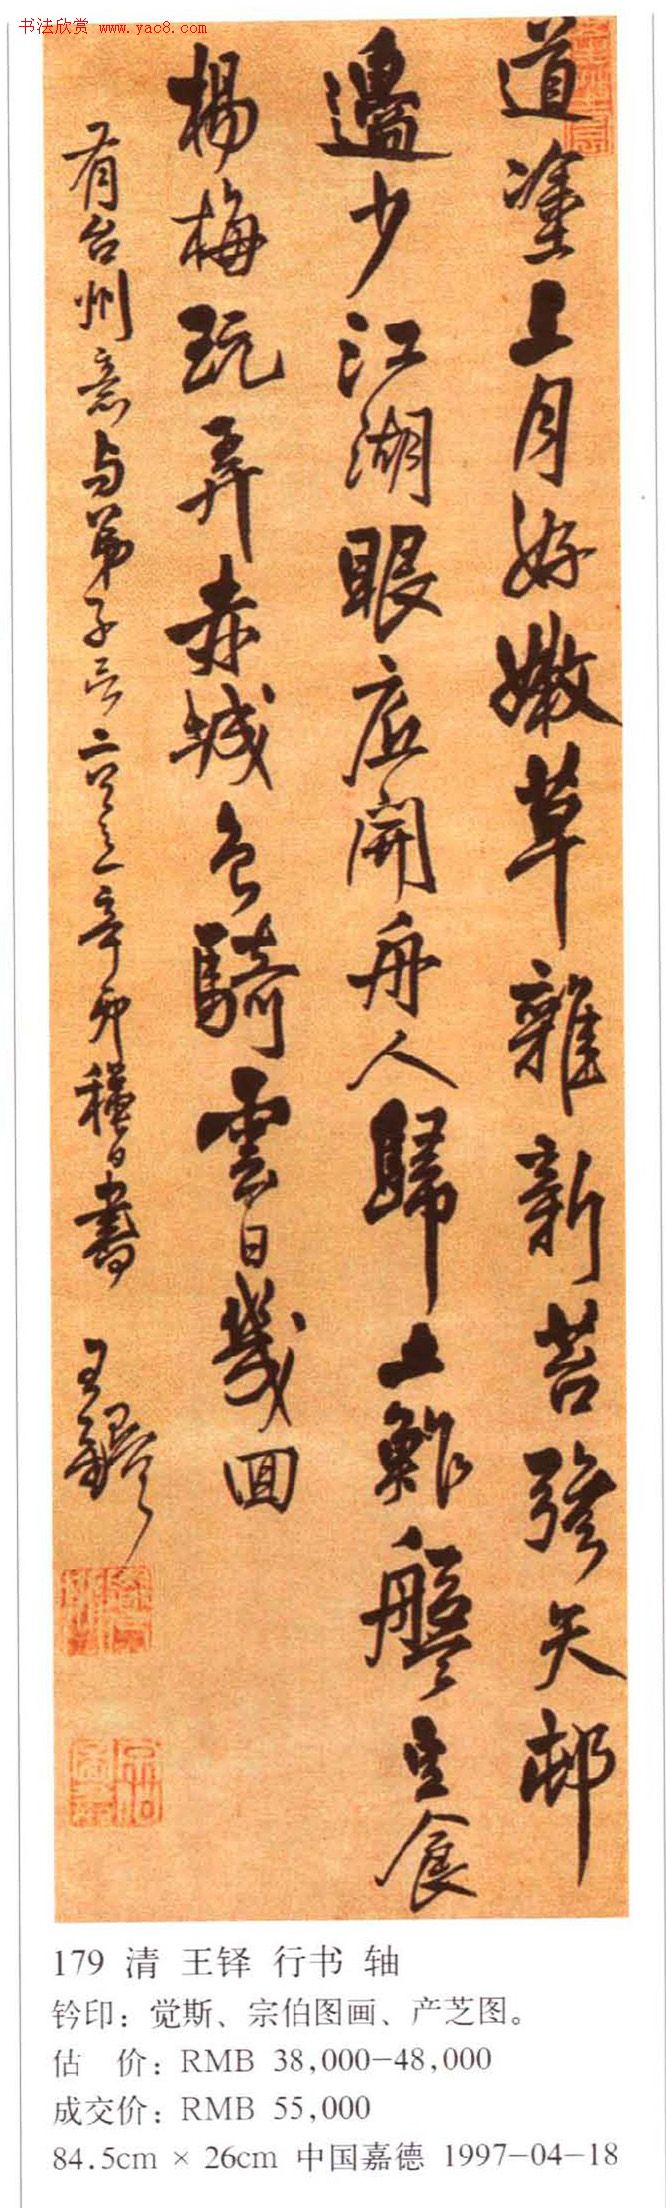 书法欣赏 www.yac8.com
道塗上月好嫩草雜新苔強矢邨
邊少江湖眼應開舟人歸上鮓盤豆食
楊梅玩弄赤城色騎雲日幾回
有台州意与弟子 辛卯 書 王鐸
179 清 王铎 行书 轴
钤印：觉斯、宗伯图画、产芝图。
估 价：RMB 38,000-48,000
成交价：RMB 55,000
84.5cm × 26cm 中国嘉德 1997-04-18